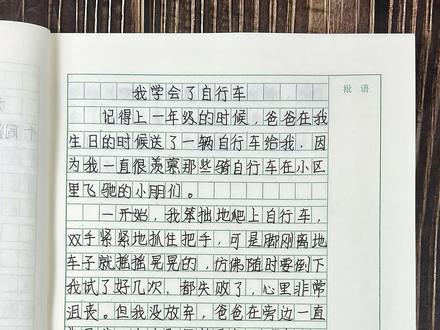 批语
我学会了自行车
记得上一年级的时候，爸爸在我
生日的时候送了一辆自行车给我，因
为我一直很羡慕那些骑自行车在小区
里飞驰的小朋们。
一开始，我笨拙地爬上自行车，
双手紧紧地抓住把手，可是脚刚离地
车子就摇摇晃晃的，仿佛随时要倒下
我试了好几次，都失败了，心里非常
沮丧。但我没放弃，爸爸在旁边一直